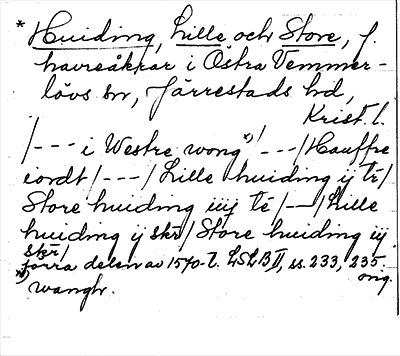 * Huiding, Lille och Store, f.
havreåkrar i Östra Vemmer-
lövs sn, Järrestads hd,
Krist. l.
/--- i Westre wong*)/ ---/Hauffre
iordt/---/Lille huiding ij té/
Store huiding iiij té/---/Lille
huiding ij skr/ Store huiding iij
skr/
förra delen av 1570-t. LSLB II, ss. 233, 235.
orig.
*) wangh.